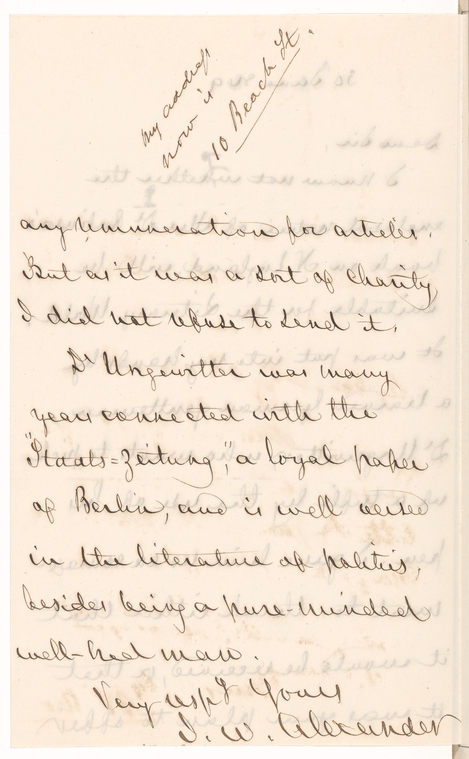 My address
now is
10 Beach St.
any remuneration for articles.
But as it was a sort of charity
I did not refuse to send it.
Dr Ungewitter was many
years connected with the
"Staats=Zeitung," a loyal paper
of Berlin, and is well versed
in the literature of politics,
besides being a pure-minded
well-bred man.
Very respy Yours
J. W. Alexander